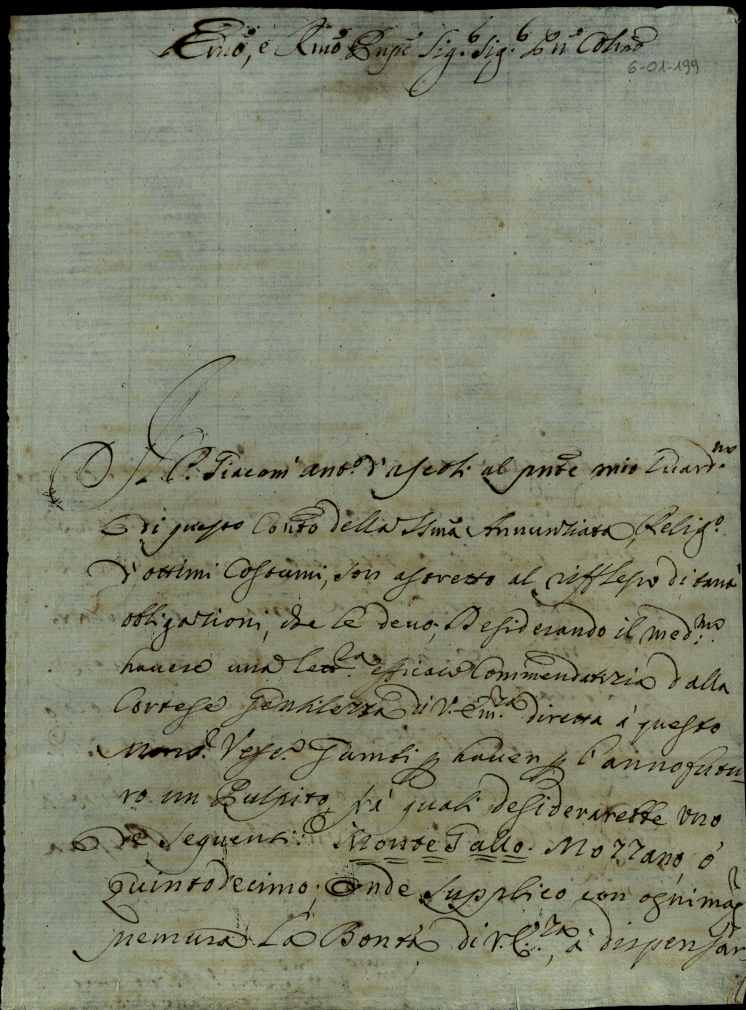 Emo, e Rmo Prnpe Sig.r Sig.r Prne Colmo
6-01-199
Il P. Giacom' Anto. d'Ascoli al pnte mio Guard.no
di questo Conto della Ssma Annunziata, Relig.o
d'ottimi Costumi, son astretto al rifflesso di tant'
obligazioni, che le devo, Desiderando il med.mo
havere una lett.a efficace Commendatizia dalla
Cortese Gentilezza di V. Em.za diretta à questo
Mons.r Vesc.o Gambi p haver p l'anno futu-
ro un Pulpito, frà quali desiderarebbe uno
de seguenti: Monte Gallo. Mozzano, ò
quintodecimo; Onde supplico con ogni mag
nemura la Bontà di V. E.za, à dispensar